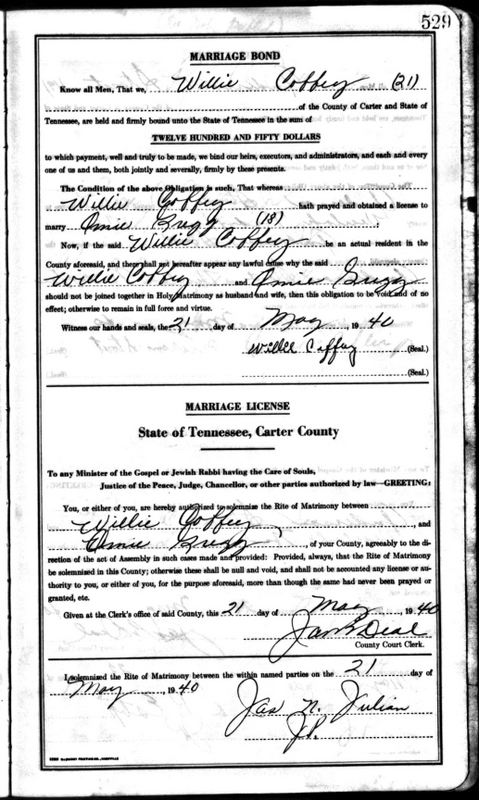 529
MARRIAGE BOND
Know all Men, That we, Willie Coffey (21)
of the County of Carter and State of
Tennessee, are held and firmly bound unto the State of Tennessee in the sum of
TWELVE HUNDRED AND FIFTY DOLLARS
to which payment, well and truly to be made, we bind our heirs, executors, and administrators, and each and every
one of us and them, both jointly and severally, firmly by these presents.
The Condition of the above Obligation is such, That whereas
Willie Coffey hath prayed and obtained a license to
marry Omie Gregg (18) ;
Now, if the said Willie Coffey be an actual resident in the
County aforesaid, and there shall not hereafter appear any lawful cause why the said
Willie Coffey and Omie Gregg
should not be joined together in Holy Matrimony as husband and wife, then this obligation to be void and of no
effect; otherwise to remain in full force and virtue.
Witness our hands and seals, the 21 day of May, 1940
Willie Coffey (Seal.)
(Seal.)
MARRIAGE LICENSE
State of Tennessee, Carter County
To any Minister of the Gospel or Jewish Rabbi having the Care of Souls,
Justice of the Peace, Judge, Chancellor, or other parties authorized by law—GREETING:
You, or either of you, are hereby authorized to solemnize the Rite of Matrimony between
Willie Coffey, and
Omie Gregg, of your County, agreeably to the di-
rection of the act of Assembly in such cases made and provided: Provided, always, that the Rite of Matrimony
be solemnized in this County; otherwise these shall be null and void, and shall not be accounted any license or au-
thority to you, or either of you, for the purpose aforesaid, more than though the same had never been prayed or
granted, etc.
Given at the Clerk's office of said County, this 21 day of May, 1940
Deal
County Court Clerk.
I solemnized the Rite of Matrimony between the within named parties on the 21 day of
May, 1940
Jas N. Julian
J.P.